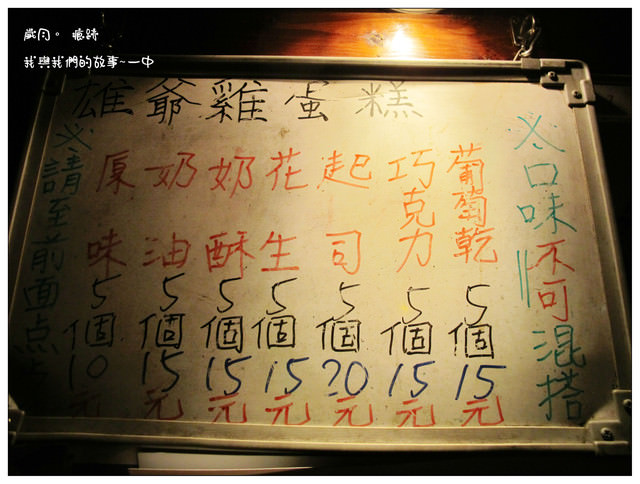 歲月。 痕跡
我與我們的故事~一中
雄爺雞蛋糕
※請至前面点
原味5個10元
奶油5個15元
奶酥5個15元
花生5個15元
起司5個20元
巧克力5個15元
葡萄乾5個15元
※口味不可混搭